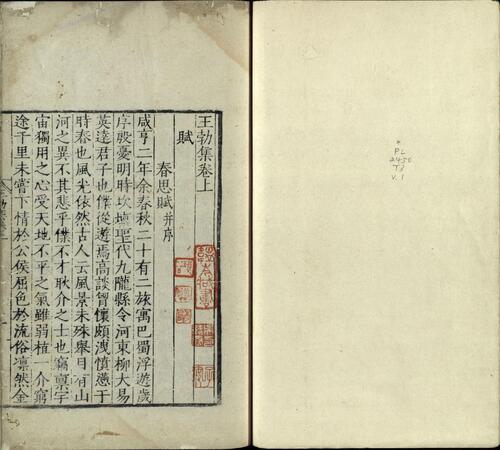 王勃集卷上
賦
春思賦 并序
咸亨二年余春秋二十有二旅寓巴蜀浮遊歲
序殷憂明時坎壈聖代九隴縣令河東柳大易
英達君子也僕從遊焉高談胷懷頗洩憤懣于
時春也風光依然古人云風景未殊舉目有山
河之異不其悲乎僕不才耿介之士也竊禀宇
宙獨用之心受天地不平之氣雖弱植一介窮
途千里未嘗下情於公侯屈色於流俗凛然金
*
PL
2450
T3
v.1